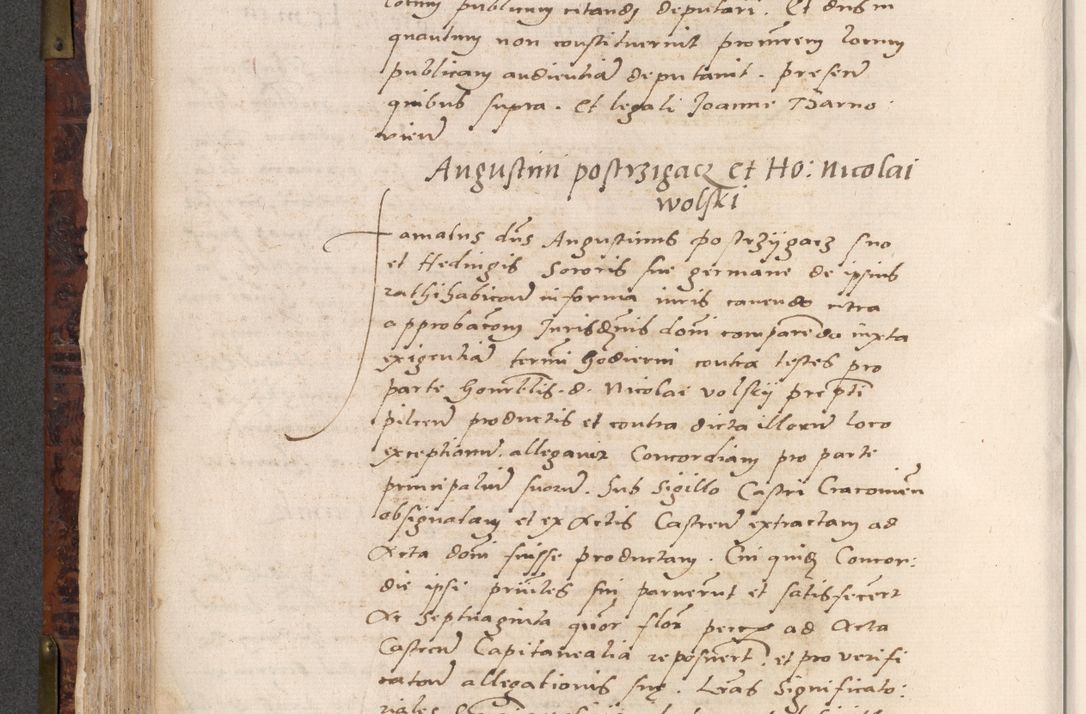 locum publicum citandj deputari. Et dns in
quantum non constituerint procurem locum
publicam audientia deputavit. presen
quibus supra. Et legali Joanne Tarno
vien
Augustini postrzigacz et Ho: Nicolai
wolski
Famatus dns Augustinus postrzygacz suo
et Hedvigis Sororis sue germane de ipsius
rathihabicone in forma iuris cavendo citra
approbacom Jurisdnis domi comparendo iuxta
exigentia termi hodierni contra testes pro
parte honorblis. d. Nicolai volskij prepti
pilcen productis et contra dicta illorum loco
exceptionum. allegavit Concordiam pro parte
principalium suorum. Sub Sigillo Castri Cracovien
obsignatam et ex Actis Castren extractam ad
Acta domi fuisse productam. Cui quidem Concor:
die ipsi priules sui paruerunt et satisfecert
Ac Septuaginta quor flor perceptos ad Acta
Castren Capitanealia reposuert. et pro verifi
catone allegationis sue. Lras Significato:
riales